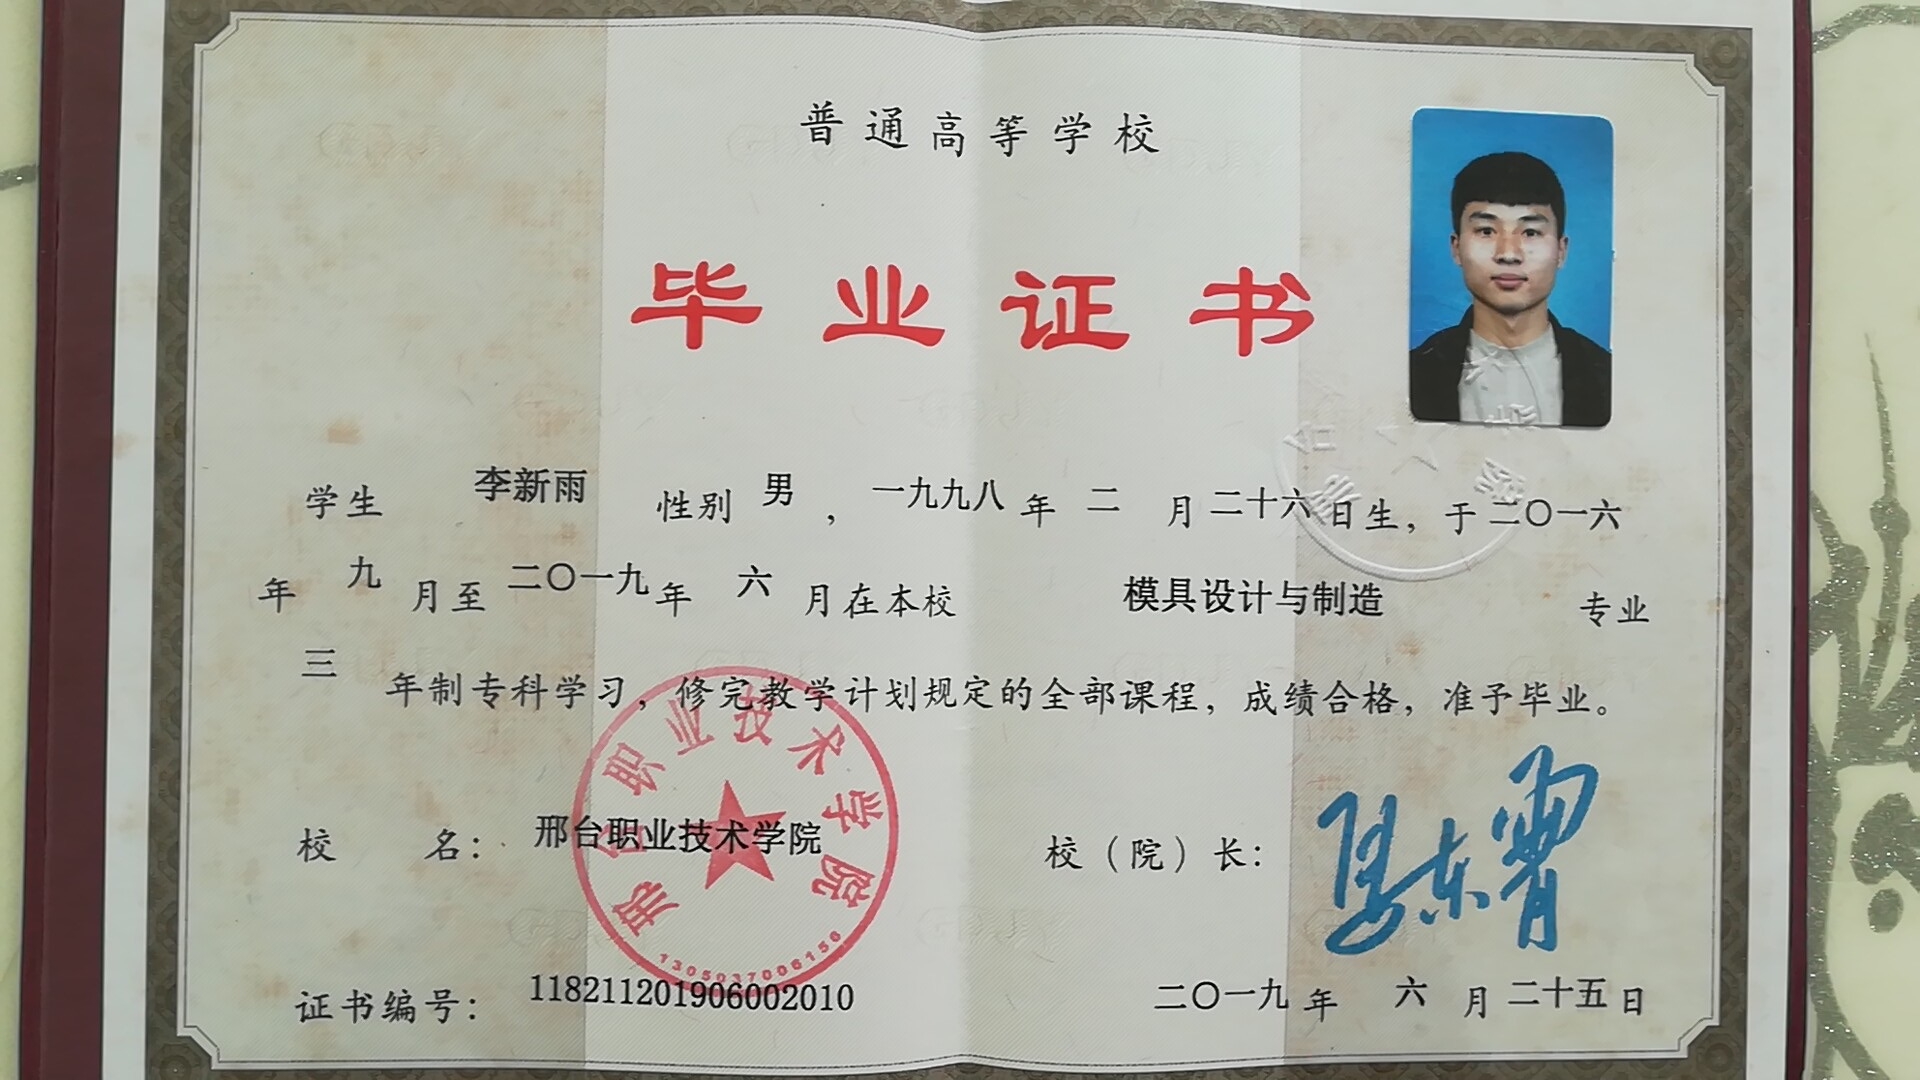 普通高等学校
毕业证书
学生 李新雨 性别 男 , 一九九八 年 二 月 二十六 日生, 于 二〇一六
年 九 月至 二〇一九 年 六 月在本校 模具设计与制造 专业
三 年制专科学习, 修完教学计划规定的全部课程, 成绩合格, 准予毕业。
校 名: 邢台职业技术学院 校（院）长:
邢台职业技术学院
1305037006156
证书编号: 118211201906002010 二〇一九 年 六 月 二十五 日